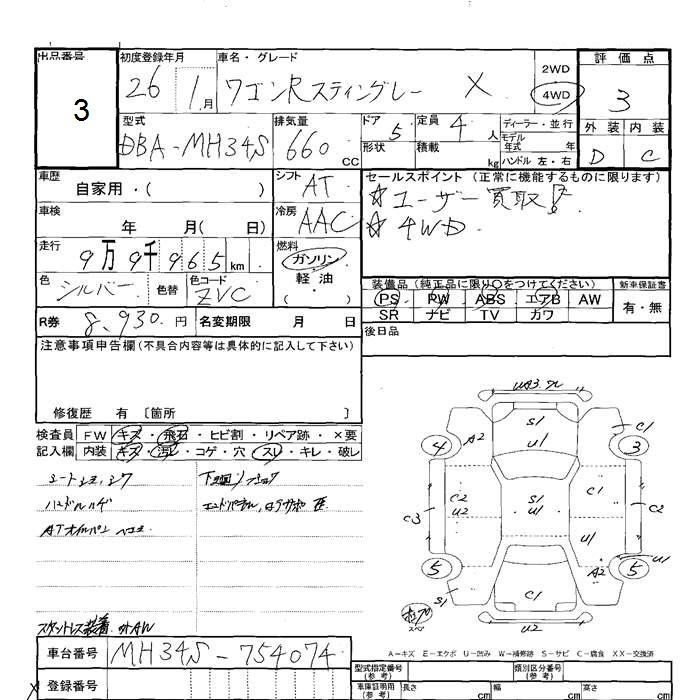 出品番号 初度登録年月 車名・グレード 評価点
3 26 1月 ワゴンRスティングレー X 2WD 4WD 3
型式 排気量 ドア 5 定員 4人 ディーラー・並行 外装 内装
DBA-MH34S 660cc 形状 積載 kg モデル年式 年 ハンドル 左・右 D C
車歴 自家用・( ) シフト AT セールスポイント (正常に機能するものに限ります)
☆ユーザー買取!
車検 年 月( 日) 冷房 AAC ☆4WD
走行 9万9千965km 燃料 ガソリン 軽油 ( )
色 シルバー 色替 色コード ZVC 装備品 (純正品に限り○をつけてください) 新車保証書
PS PW ABS エアB AW 有・無
R券 8,930.円 名変期限 月 日 SR ナビ TV カワ
後日品
注意事項申告欄(不具合内容等は具体的に記入して下さい)
修復歴 有 [箇所 ]
検査員 FW キズ・飛石・ヒビ割・リペア跡・×要
記入欄 内装 キズ・汚レ・コゲ・穴・スレ・キレ・破レ
ハンドルハゲ
スタットレス装着 AW
UA3
S1 C1
A2 U1
4 3
C2 S1 C1
C3 U2 U1 C2
U1
5 A2 U1 5
S1 C1
U2
A=キズ E=エクボ U=凹み W=補修跡 S=サビ C=腐食 XX=交換済
車台番号 MH34S-754074
型式指定番号(参考) 類別区分番号(参考)
登録番号
車庫証明用(参考) 長さ cm 幅 cm 高さ cm